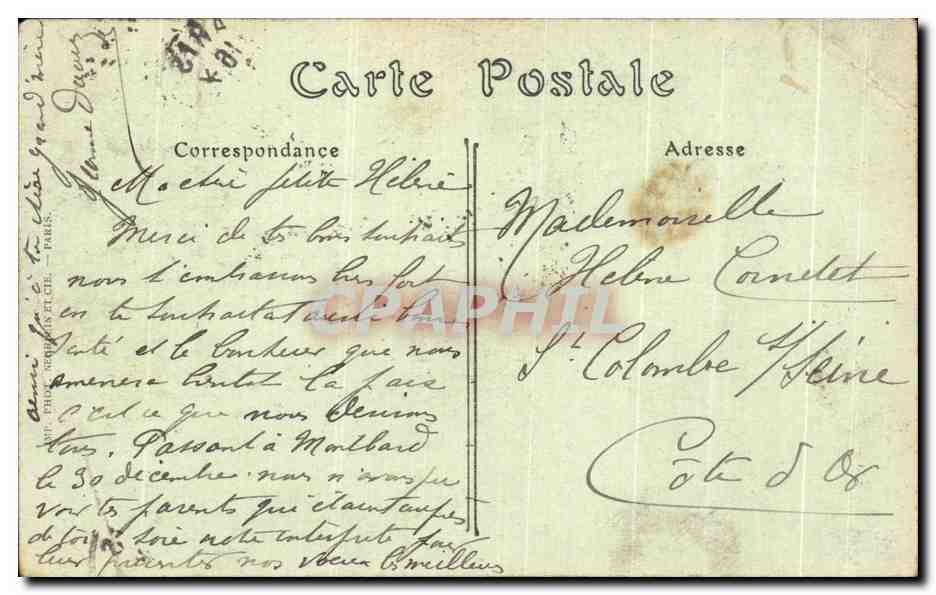 Carte Postale
Correspondance
Adresse
Ma chère petite Hélène
Merci de tes bons souhaits
nous t'embrassons bien fort
en te souhaitant aussi bonne
santé et le bonheur que nous
amènera bientôt la paix
c'est ce que nous désirons
tous. Passant à Montbard
le 30 décembre nous n'avons pu
voir tes parents qui étaient auprès
de toi sois notre interprète pour
leur présenter nos voeux les meilleurs
ainsi qu'à ta chère grand'mère
Mademoiselle
Hélène Cornetet
St Colombe s/Seine
Côte d'Or
IMP. PHOT. NEURDEIN ET CIE. — PARIS.
CPAPHIL